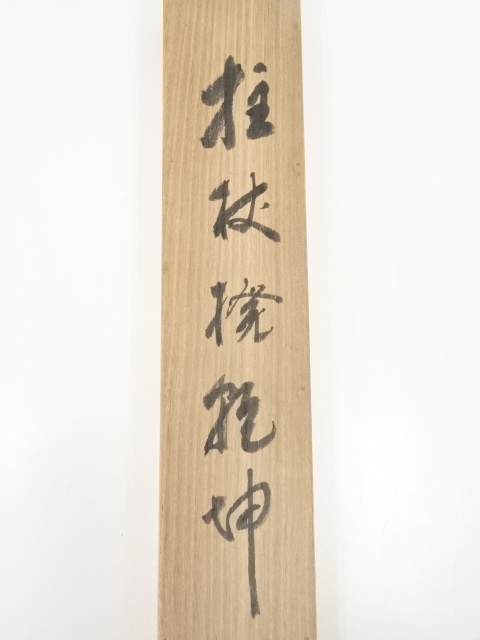 拄杖撥乾坤